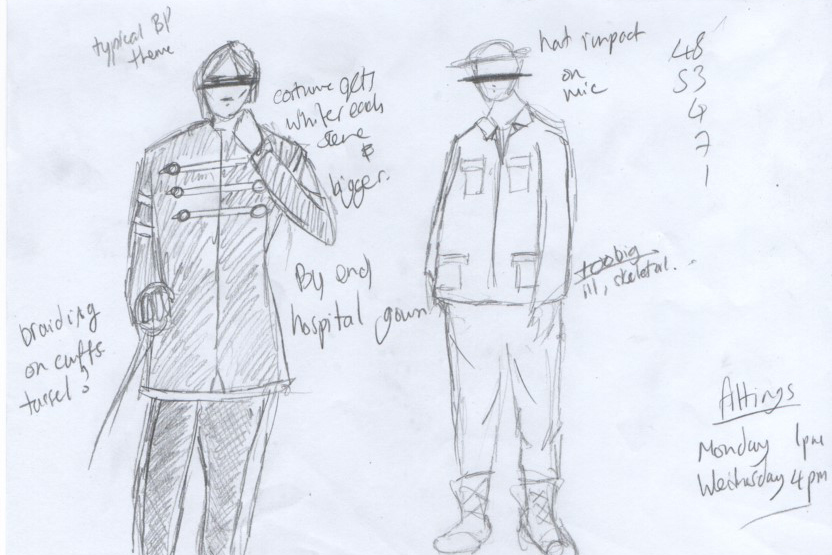 typical BP
theme
costume gets
whiter each
scene
&
bigger.
By end
hospital gown
braiding
on cuffs
tassel?
hat impact
on
mic
48
53
4
7
1
too big
ill, skeletal.
Fittings
Monday 1pm
Wednesday 4pm